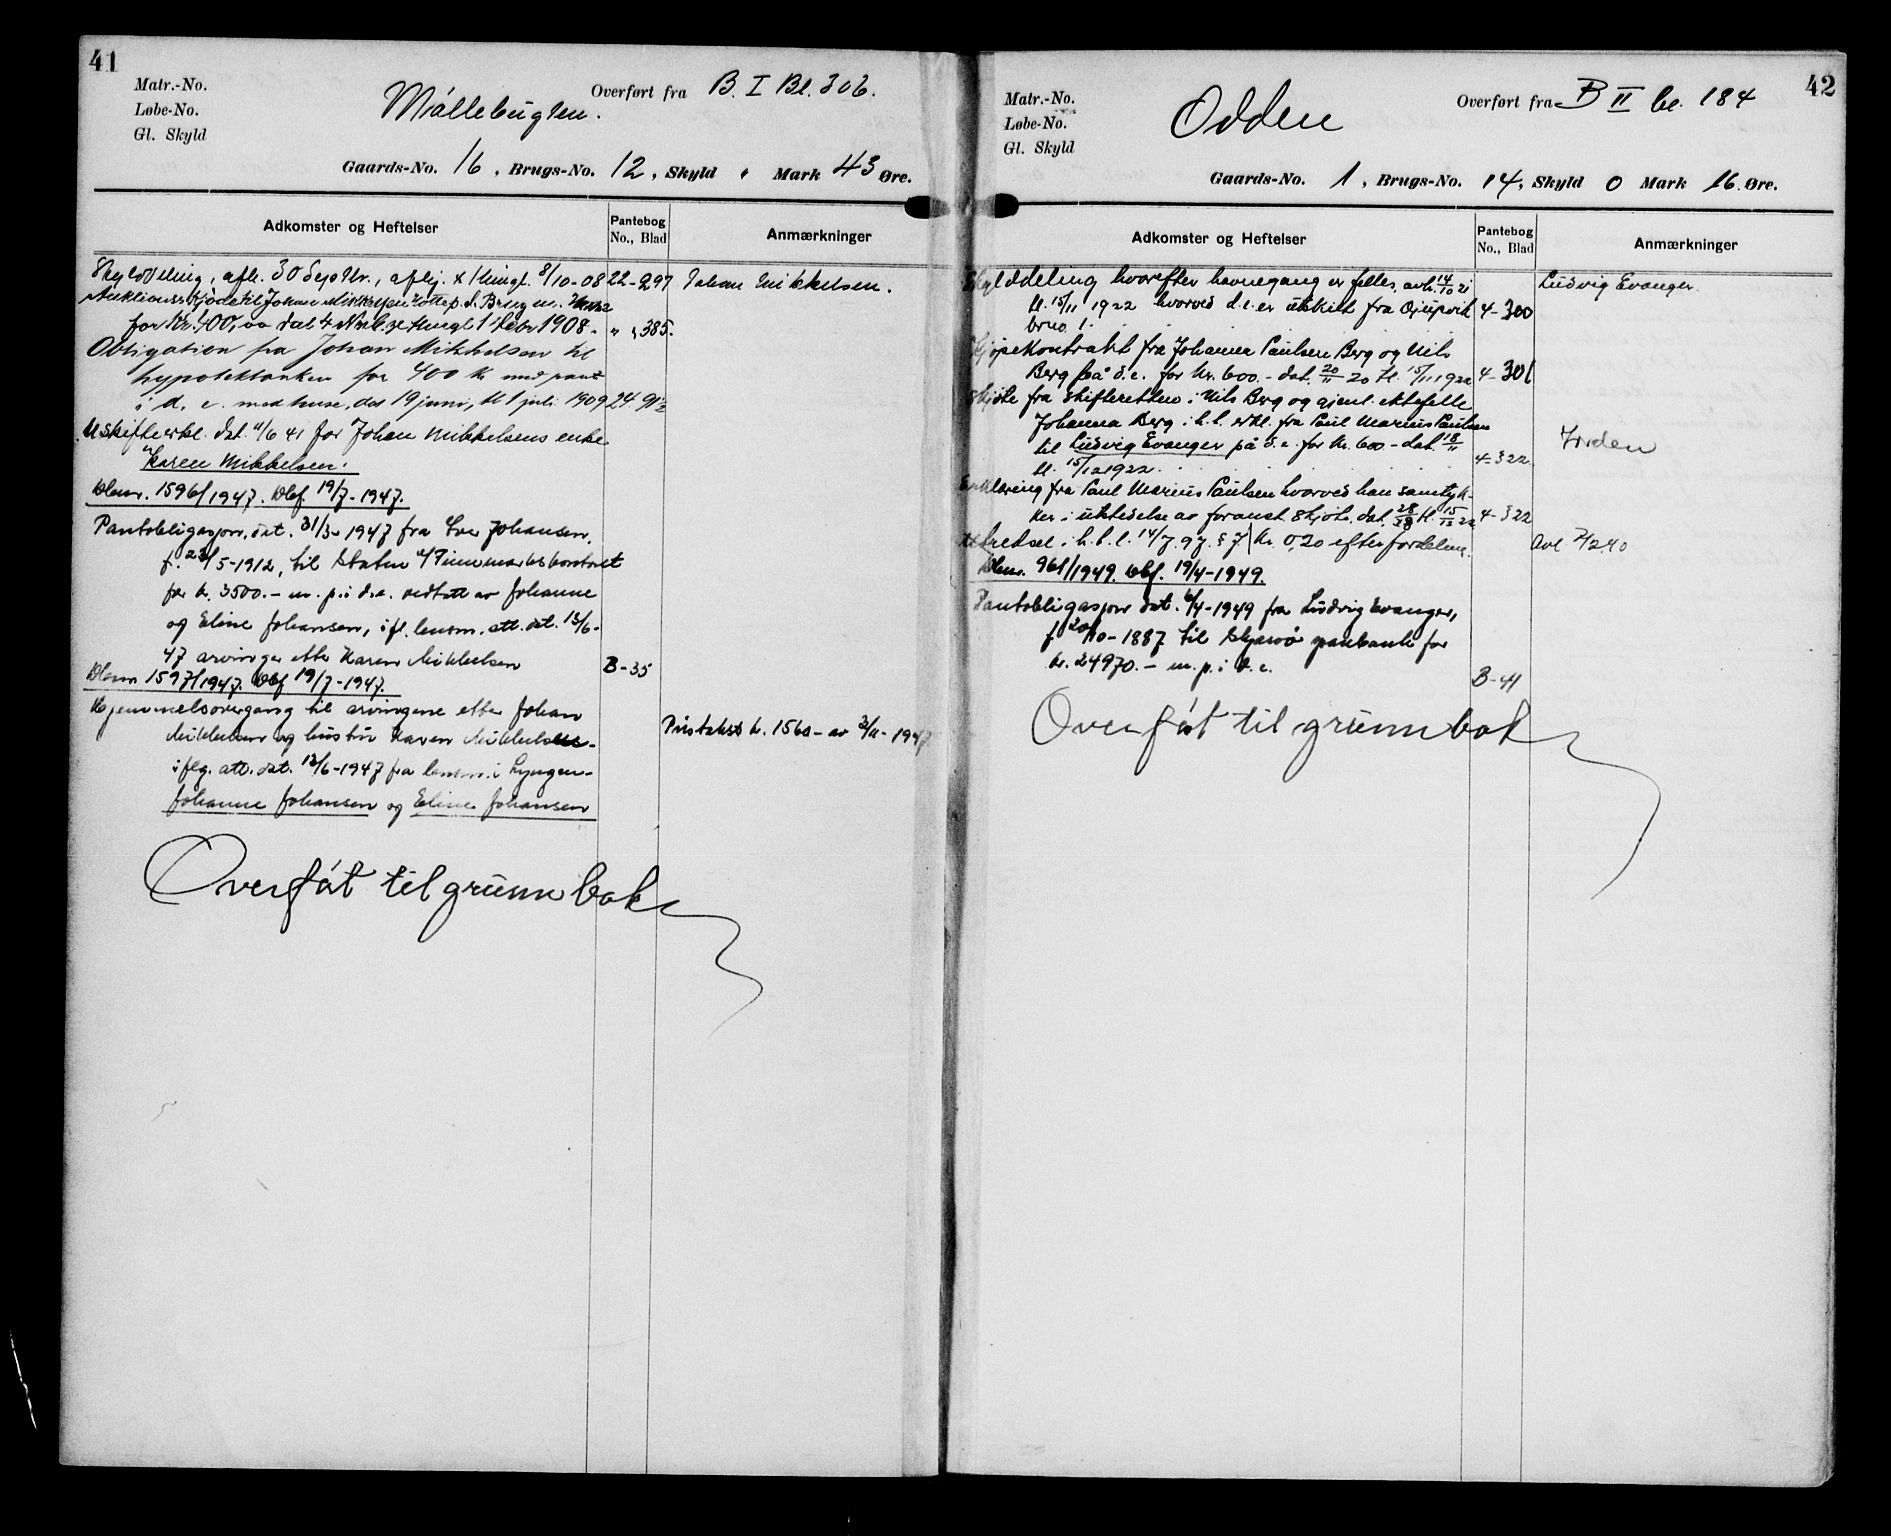 41
Matr.-No.
Løbe-No.
Gl. Skyld
Mállebugten.
Overført fra B. I Bl. 306.
Gaards-No. 16, Brugs-No. 12, Skyld " Mark 43 Øre.
Adkomster og Heftelser
Pantebog
No., Blad
Anmærkninger
Skylddeling, afh. 30 Septbr., aflj. & thingl. 8/10-08 22-297 Johan Mikkelsen.
Auktionsskjøde til Johan Mikkelsen
for Kr. 400, dat 4 thingl 1 Febr 1908. " , 385.
Obligation fra Johan Mikkelsen til
hypotekbanken for 400 Kr med pant
i d. e. med huse, dat 19 juni, tl 1 juli 1909 24-91
Uskifteerkl. dat. 11/6 41 for Johan Mikkelsens enke
Karen Mikkelsen.
Dbnr. 1596/1947. Dbf. 19/7-1947.
Pantobligasjon, dat. 31/3-1947 fra Iver Johansen,
f. 23/5-1912, til Staten v/Finnmarkskontoret
for kr. 3500.- m. p. i d.e. vedtatt av Johanne
og Eline Johansen, ifl. lensm. att. dat. 13/6-
47 arvinger etter Karen Mikkelsen B-35
Dbnr 1597/1947. Dbf 19/7-1947.
Hjemmelsovergang til arvingene etter Johan
Mikkelsen og hustru Karen Mikkelsen-
iflg. att. dat. 13/6-1947 fra lensm. i Lyngen-
Johanne Johansen og Eline Johansen
Pristakst kr. 1560- av 3/11-1947
Overført til grunnbok
42
Matr.-No.
Løbe-No.
Gl. Skyld
Odden
Overført fra B II bl. 184
Gaards-No. 1, Brugs-No. 14, Skyld 0 Mark 16. Øre.
Adkomster og Heftelser
Pantebog
No., Blad
Anmærkninger
Skylddeling hvorefter havnegang er felles, avh. 14/10 21
tl. 15/11 1922 hvorved d.e. er utskilt fra Djupvik 4-300
brno 1.
Ludvig Evanger.
Kjøpekontrakt fra Johanna Paulsen Berg og Nils
Berg på d.e. for kr. 600.- dat. 20/11 20 tl. 15/11 1922 4-301
Skjøte fra skifteretten i Nils Berg og gjenl. ektefelle
Johanna Berg i h.t. erkl. fra Paul Marius Paulsen
til Ludvig Evanger på d.e. for kr. 600.- dat. 18/11
tl. 15/12 1922. 4-322
Jorden
Erklæring fra Paul Marius Paulsen hvorved han samtyk-
ker i utstedelse av foranst. skjøte, dat. 28/10 tl. 15/12 22 4-322
Utferdsel i h.t. l. 14/7 97 § 7 Kr. 0,20 efter fordelen.
Avl. 2/2 40
Dbnr. 961/1949. Dbf. 19/4-1949.
Pantobligasjon dat. 6/4-1949 fra Ludvig Evanger,
f. 20/10-1887 til Skjervøy sparebank for
kr. 24970.- m. p. i d.e. B-41
Overført til grunnbok